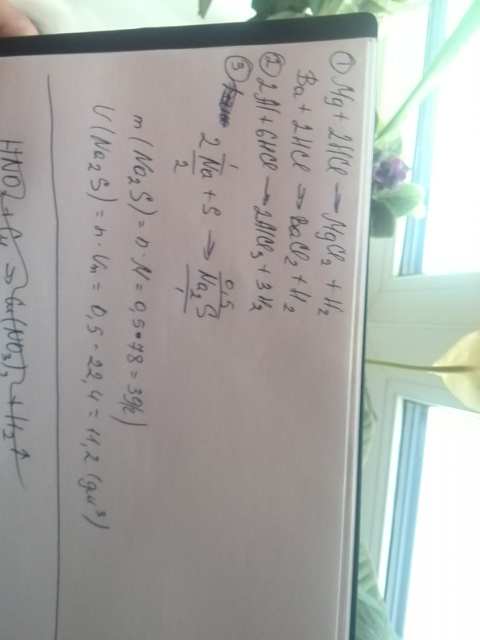 ① Mg + 2HCl → MgCl₂ + H₂
Ba + 2HCl → BaCl₂ + H₂
② 2Al + 6HCl → 2AlCl₃ + 3H₂
③
1 0,5
2Na + S → Na₂S
2 1
m(Na₂S) = n · M = 0,5 · 78 = 39(г)
V(Na₂S) = n · Vm = 0,5 · 22,4 = 11,2 (дм³)
HNO₂ + Cu → Cu(NO₃)₂ + H₂↑